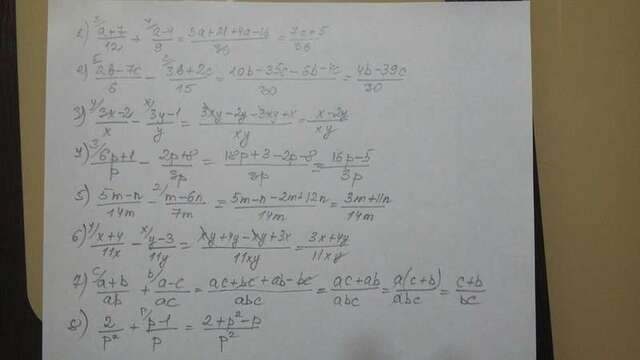 1) ³/ a+7/12 + ⁴/ a-4/9 = 3a+21+4a-16/36 = 7a+5/36
2) ⁵/ 2b-7c/6 - ²/ 3b+2c/15 = 10b-35c-6b-4c/30 = 4b-39c/30
3) ʸ/ 3x-2/x - ˣ/ 3y-1/y = 3xy-2y-3xy+x/xy = x-2y/xy
4) ³/ 6p+1/p - 2p+8/3p = 18p+3-2p-8/3p = 16p-5/3p
5) 5m-n/14m - ²/ m-6n/7m = 5m-n-2m+12n/14m = 3m+11n/14m
6) ʸ/ x+4/11x - ˣ/ y-3/11y = xy+4y-xy+3x/11xy = 3x+4y/11xy
7) ᶜ/ a+b/ab + ᵇ/ a-c/ac = ac+bc+ab-bc/abc = ac+ab/abc = a(c+b)/abc = c+b/bc
8) 2/p² + ᵖ/ p-1/p = 2+p²-p/p²